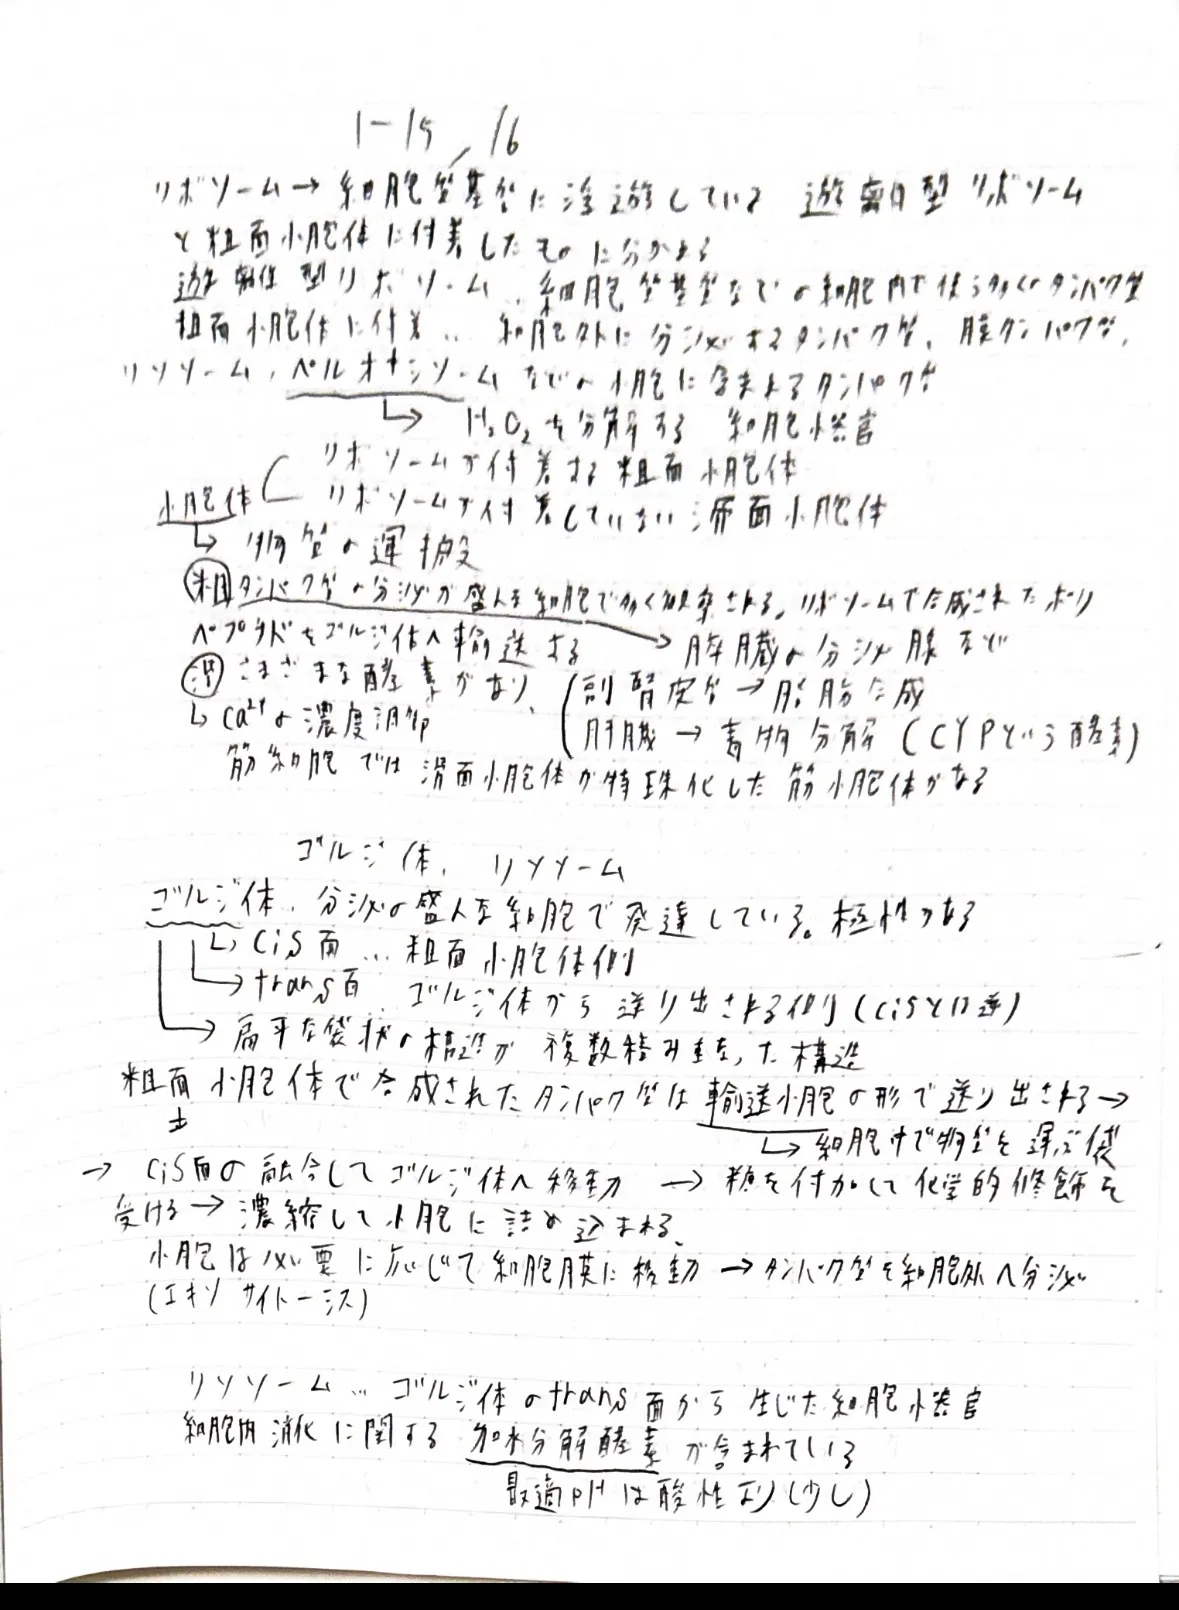 1-15, 16
リボソーム→細胞質基質に浮遊している 遊離型リボソーム
と粗面小胞体に付着したものに分かれる
遊離型リボソーム… 細胞質基質などの細胞内で使う多くのタンパク質
粗面小胞体に付着… 細胞外に分泌するタンパク質、膜タンパク質、
リソソーム、ペルオキシソームなどの小胞に含まれるタンパク質
↳ H₂O₂を分解する 細胞小器官
リボソームが付着する粗面小胞体
小胞体 リボソームが付着していない滑面小胞体
↳ 物質の運搬
粗 タンパク質の分泌が盛んな細胞で多く観察される。リボソームで合成されたポリ
ペプチドをゴルジ体へ輸送する → 膵臓の分泌腺など
滑 さまざまな酵素があり、 副腎皮質→脂肪合成
↳ Ca²⁺の濃度調節 肝臓→毒物分解(CYPという酵素)
筋細胞では滑面小胞体が特殊化した筋小胞体がある
ゴルジ体、リソソーム
ゴルジ体… 分泌の盛んな細胞で発達している。極性がある
↳ cis面… 粗面小胞体側
→ trans面 ゴルジ体から送り出される側(cisとは逆)
→ 扁平な袋状の構造が複数積み重なった構造
粗面小胞体で合成されたタンパク質は輸送小胞の形で送り出される→
↳ 細胞中で物質を運ぶ袋
→ cis面の融合してゴルジ体へ移動 → 糖を付加して化学的修飾を
受ける→濃縮して小胞に詰め込まれる、
小胞は必要に応じて細胞膜に移動→タンパク質を細胞外へ分泌
(エキソサイトーシス)
リソソーム… ゴルジ体のtrans面から生じた細胞小器官
細胞内消化に関する加水分解酵素が含まれている
最適pHは酸性より(少し)